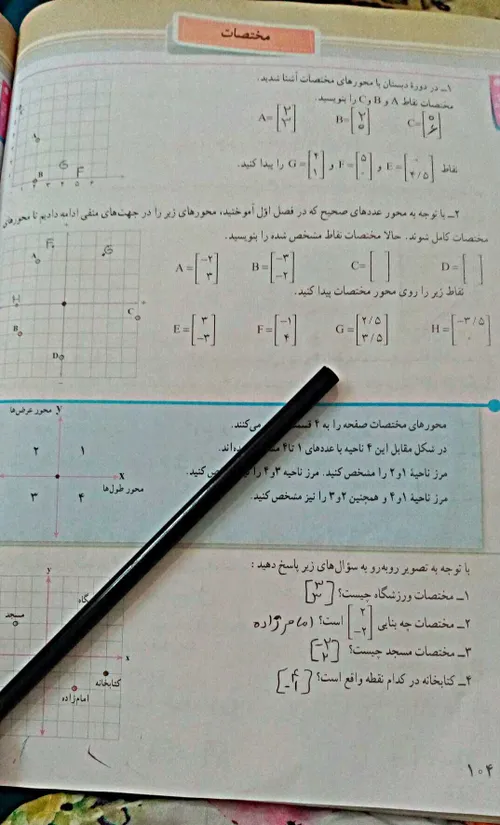 مختصات
۱ـ در دورهٔ دبستان با محورهای مختصات آشنا شدید.
مختصات نقاط A و B و C را بنویسید.
A=[۲ ۳] B=[۲ ۵] C=[۵ ۶]
نقاط E=[۰ ۴/۵] و F=[۵ ۰] و G=[۴ ۱] را پیدا کنید.
A
B
G F
۱ ۲ ۳ ۴ ۵ ۶
۲ـ با توجه به محور عددهای صحیح که در فصل اوّل آموختید، محورهای زیر را در جهت‌های منفی ادامه دادیم تا محورهای
مختصات کامل شوند. حالا مختصات نقاط مشخص شده را بنویسید.
A=[−۲ ۳] B=[−۳ −۲] C=[ ] D=[ ]
نقاط زیر را روی محور مختصات پیدا کنید.
E=[۳ −۳] F=[−۱ ۴] G=[۲/۵ ۳/۵] H=[−۳/۵ ۰]
F
G
A
H
C
B
D
محورهای مختصات صفحه را به ۴ قسمت می‌کنند.
در شکل مقابل این ۴ ناحیه با عددهای ۱ تا ۴
مرز ناحیهٔ ۱ و ۲ را مشخص کنید. مرز ناحیه ۳ و ۴ را کنید.
مرز ناحیهٔ ۱ و ۴ و همچنین ۲ و ۳ را نیز مشخص کنید.
محور عرض‌ها y
۲ ۱
x
محور طول‌ها
۳ ۴
با توجه به تصویر روبه‌رو به سؤال‌های زیر پاسخ دهید :
۱ـ مختصات ورزشگاه چیست؟ [۳ ۳]
۲ـ مختصات چه بنایی [۲ −۲] است؟ امامزاده
۳ـ مختصات مسجد چیست؟ [−۲ ۲]
۴ـ کتابخانه در کدام نقطه واقع است؟ [۴ −۱]
y
مسجد
x
کتابخانه
امام‌زاده
۱۰۴